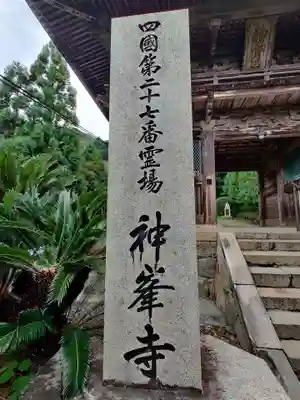 四國第二十七番霊場
神峯寺